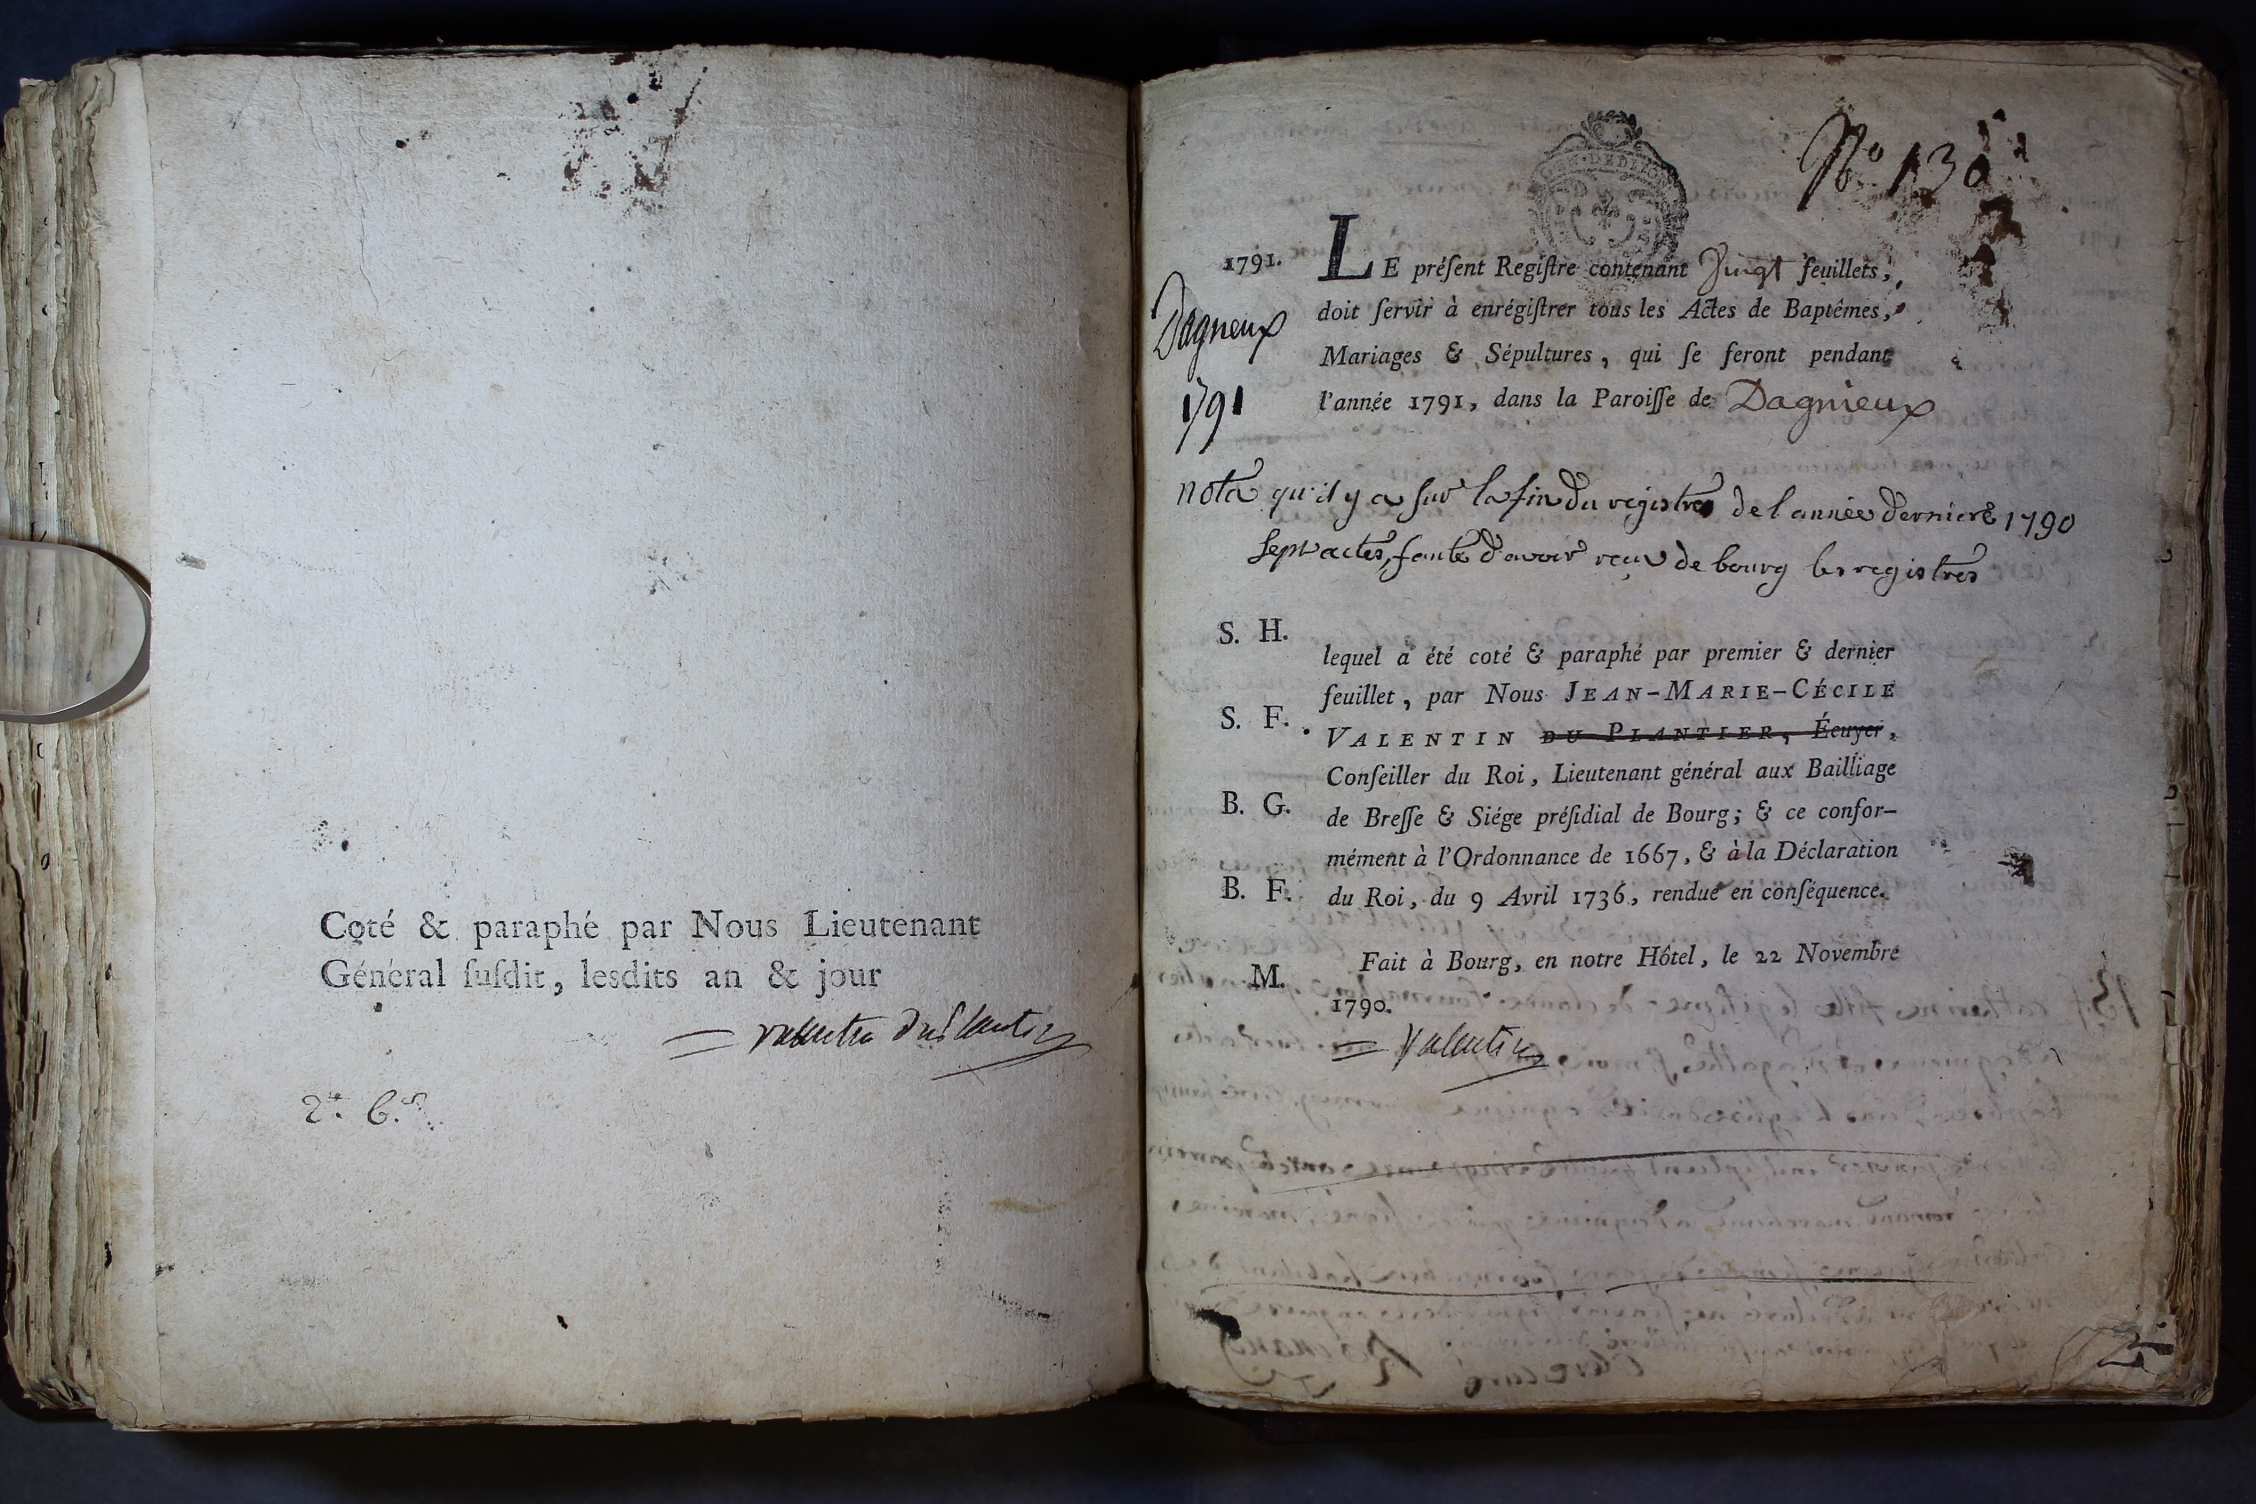 Coté & paraphé par Nous Lieutenant
Général ſuſdit, leſdits an & jour
= valentin duplantier
2.e 6.e
GEN. DE DIJON
N.o 130
1791.
Dagneux
1791
LE préſent Regiſtre contenant Vingt feuillets,
doit ſervir à enrégiſtrer tous les Actes de Baptêmes,
Mariages & Sépultures, qui ſe feront pendant
l'année 1791, dans la Paroiſſe de Dagnieux
nota qu'il y a sur la fin du registre de l année derniere 1790
sept actes, faute d'avoir reçu de bourg les registres
S. H.
S. F.
B. G.
B. F.
M.
lequel a été coté & paraphé par premier & dernier
feuillet, par Nous JEAN-MARIE-CÉCILE
VALENTIN DU PLANTIER, Écuyer,
Conſeiller du Roi, Lieutenant général aux Bailliage
de Breſſe & Siége préſidial de Bourg; & ce confor-
mément à l'Ordonnance de 1667, & à la Déclaration
du Roi, du 9 Avril 1736, rendue en conſéquence.
Fait à Bourg, en notre Hôtel, le 22 Novembre
1790.
= Valentin